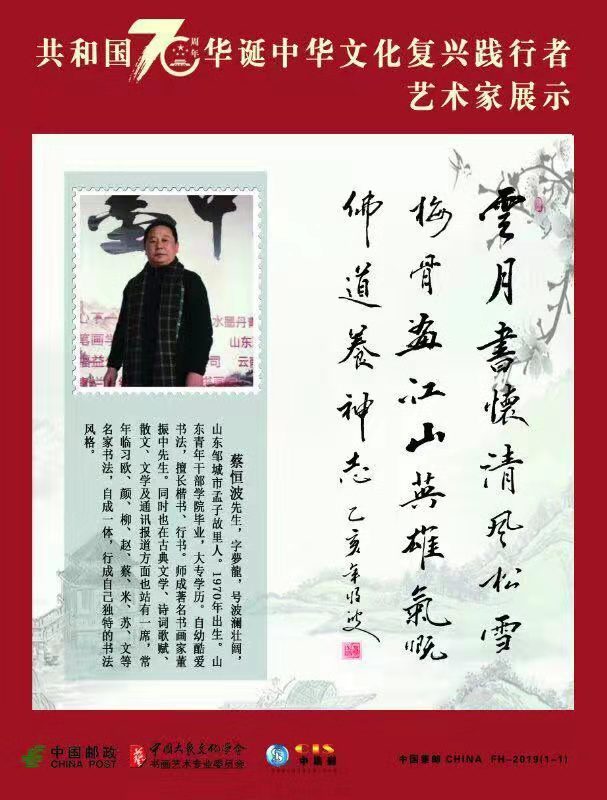 共和国70周年华诞中华文化复兴践行者
艺术家展示
雲月書懷清風松雪
梅骨画江山英雄氣慨
佛道養神志 乙亥年恒波
水墨丹青
山东
蔡恒波先生，字夢龍，号波澜壮阔，
山东邹城市孟子故里人。1970年出生。山
东青年干部学院毕业，大专学历。自幼酷爱
书法，擅长楷书、行书。师成著名书画家董
振中先生。同时也在古典文学、诗词歌赋、
散文、文学及通讯报道方面也站有一席，常
年临习欧、颜、柳、赵、蔡、米、苏、文等
名家书法，自成一体，行成自己独特的书法
风格。
中国邮政
CHINA POST
中国大众文化学会
书画艺术专业委员会
CIS
中国集邮 CHINA FH-2019(1-1)